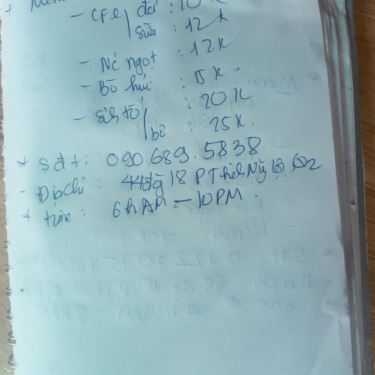 - cfe đá : 10K
sữa : 12K
- Nc ngọt : 12K
- Bò húc : 15K
- Sinh tố : 20K
bơ 25K
+ Sđt: 090.689.5838
- Địa chỉ : 44 đg 18 P
+ time : 6h AM - 10PM.